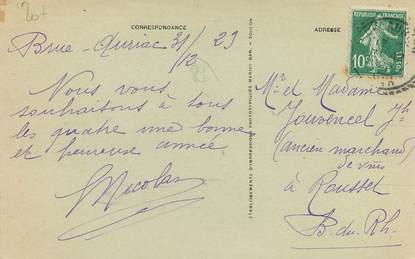 CORRESPONDANCE
Brue-Auriac 31/12 23
Nous vous
souhaitons à tous
les quatre une bonne
et heureuse année
Nicolas
ÉTABLISSEMENTS D'IMPRESSIONS PHOTOTYPIQUES MARIUS BAR. - TOULON
ADRESSE
10c
Mr et Madame
Jouvencel Jh
(ancien marchand
de vins
à Rousset
B. du Rh.